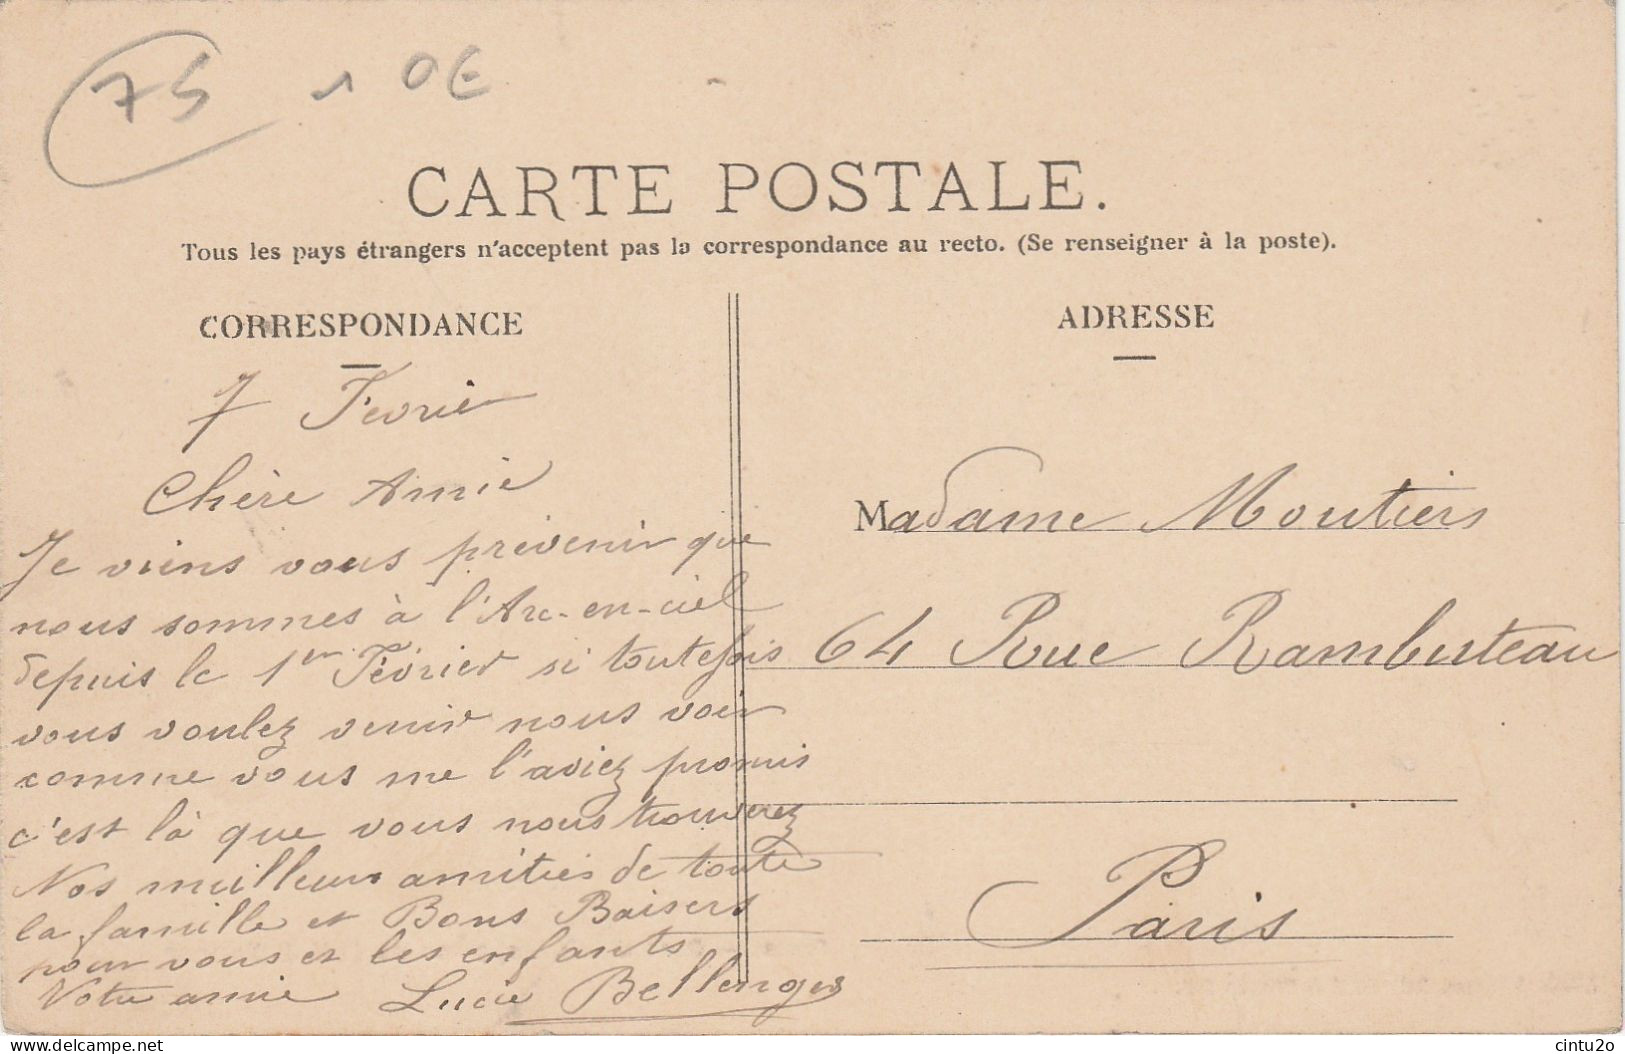 75 10€
CARTE POSTALE.
Tous les pays étrangers n'acceptent pas la correspondance au recto. (Se renseigner à la poste).
CORRESPONDANCE
7 Fevrier
Chère Amie
Je viens vous prévenir que
nous sommes à l'Arc-en-ciel
depuis le 1er Février si toutefois
vous voulez venir nous voir
comme vous me l'aviez promis
c'est là que vous nous trouverez
Nos meilleurs amitiés de toute
la famille et Bons Baisers
pour vous et les enfants
Votre amie Lucie Bellenger
ADRESSE
Madame Moutiers
64 Rue Rambuteau
Paris
delcampe.net
cintu2o